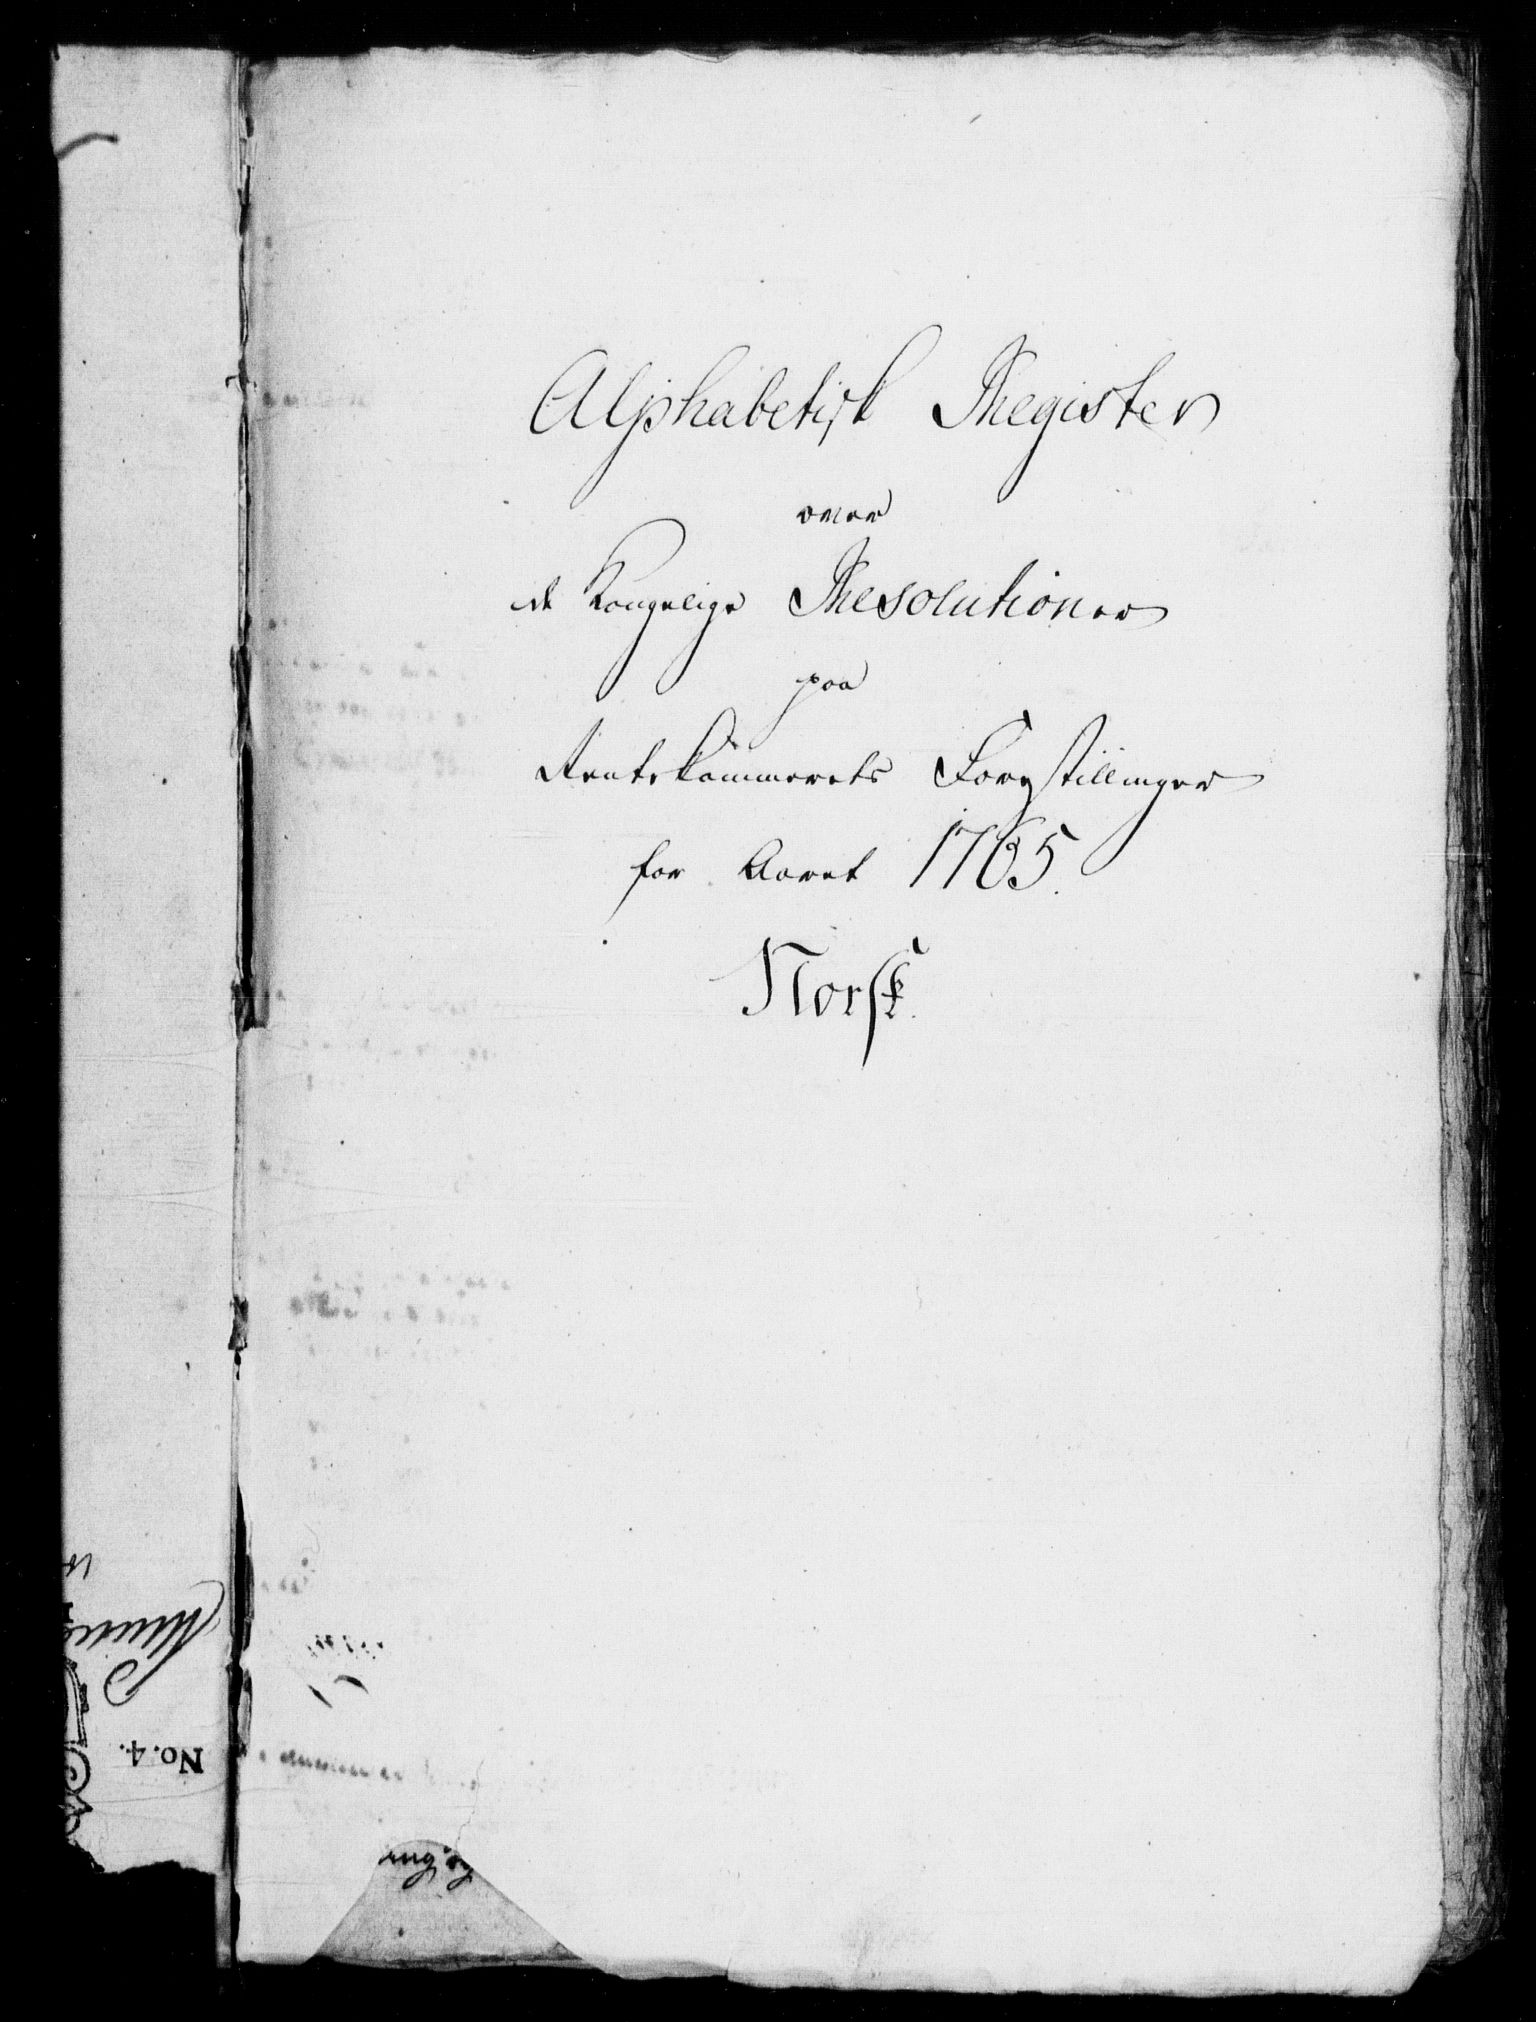 Alphabetisk Register
over
de Kongelige Resolutioner
paa
Rentekammerets Forestillinger
for Aaret 1765.
Norsk.
No. 4.